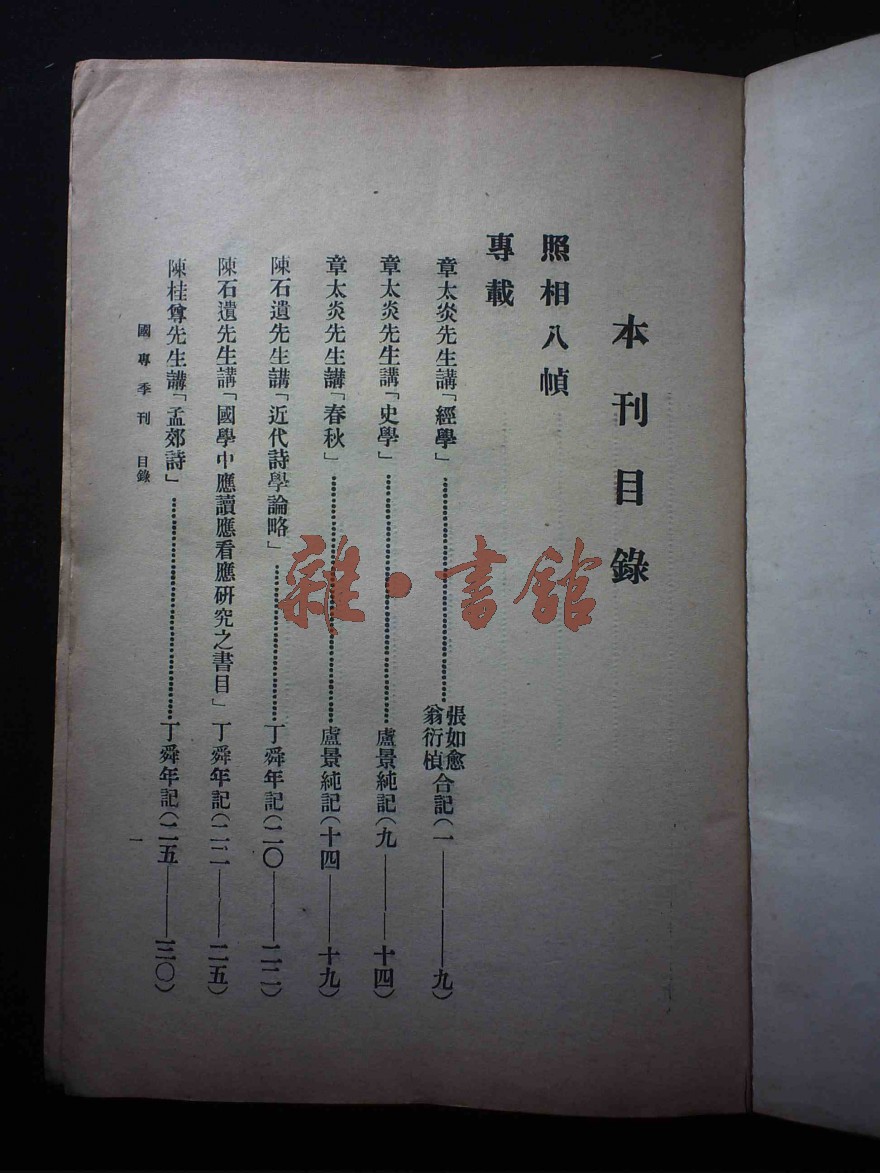 本刊目錄
照相八幀
專載
章太炎先生講「經學」……張如愈翁衍楨合記(一——九)
章太炎先生講「史學」……盧景純記(九——十四)
章太炎先生講「春秋」……盧景純記(十四——十九)
陳石遺先生講「近代詩學論略」……丁舜年記(二〇——二二)
陳石遺先生講「國學中應讀應看應研究之書目」丁舜年記(二二——二五)
陳桂尊先生講「孟郊詩」……丁舜年記(二五——三〇)
國專季刊 目錄
一
雜·書館